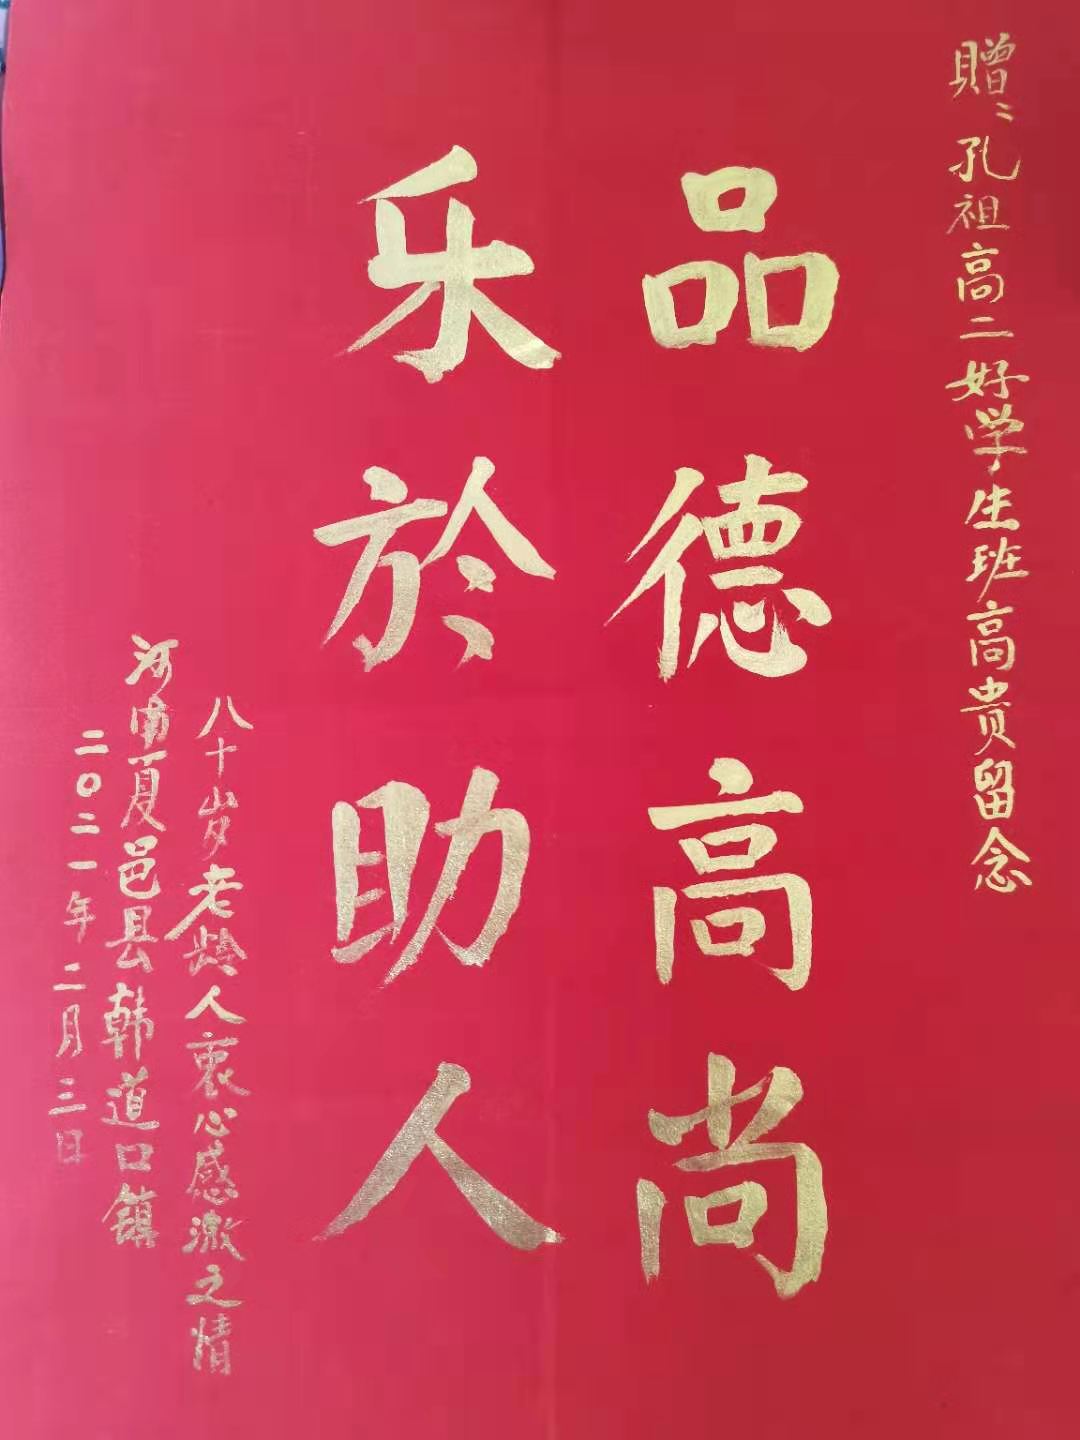 赠：孔祖高二好学生班高贵留念
品德高尚
乐於助人
八十岁老龄人衷心感激之情
河南夏邑县韩道口镇
二〇二一年二月三日